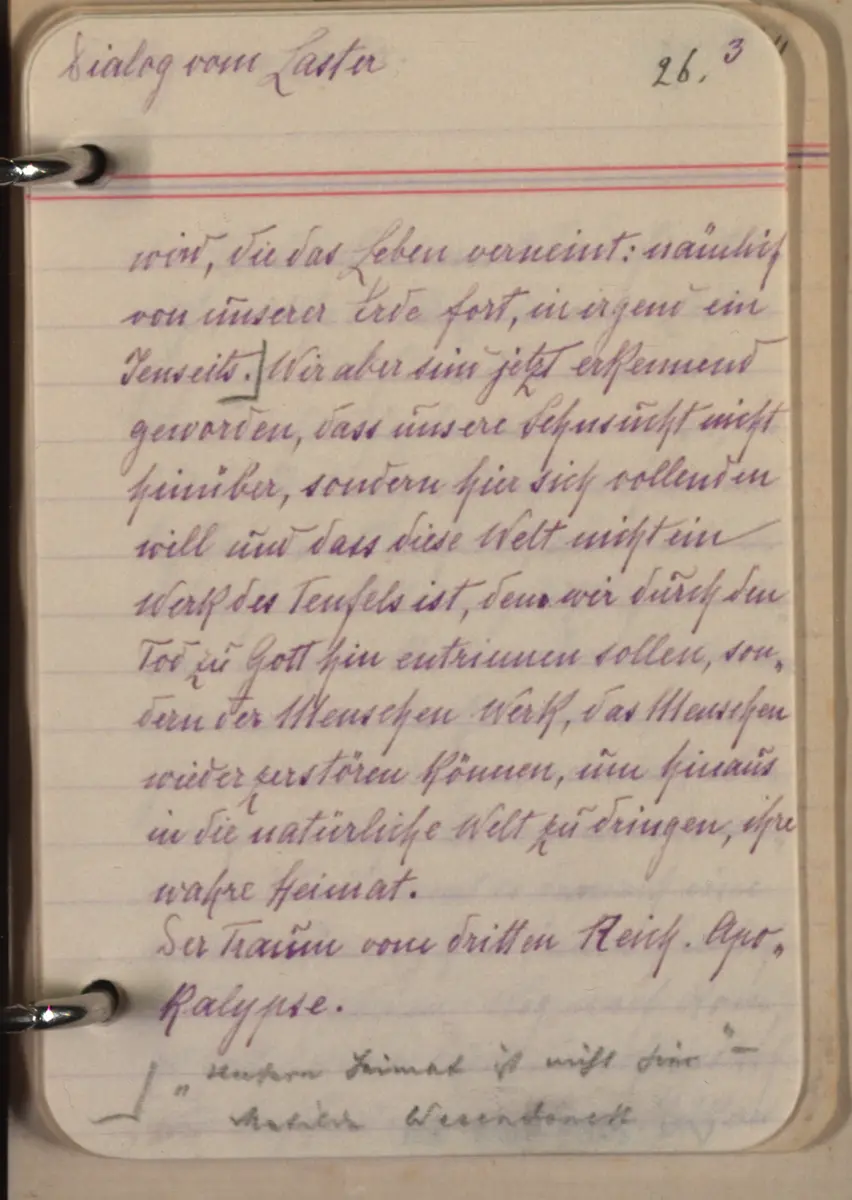 Dialog vom Laster
26. 3
wird, die das Leben verneint: nämlich
von unserer Erde fort, in irgend ein
Jenseits.] Wir aber sind jetzt erkennend
geworden, dass unsere Sehnsucht nicht
hinüber, sondern hier sich vollenden
will und dass diese Welt nicht ein
Werk des Teufels ist, dem wir durch den
Tod zu Gott hin entrinnen sollen, son-
dern der Menschen Werk, das Menschen
wieder zerstören können, um hinaus
in die natürliche Welt zu dringen, ihre
wahre Heimat.
Der Traum vom dritten Reich. Apo-
kalypse.
„Unsere Heimat ist nicht hier" –
Matilde Wesendonck